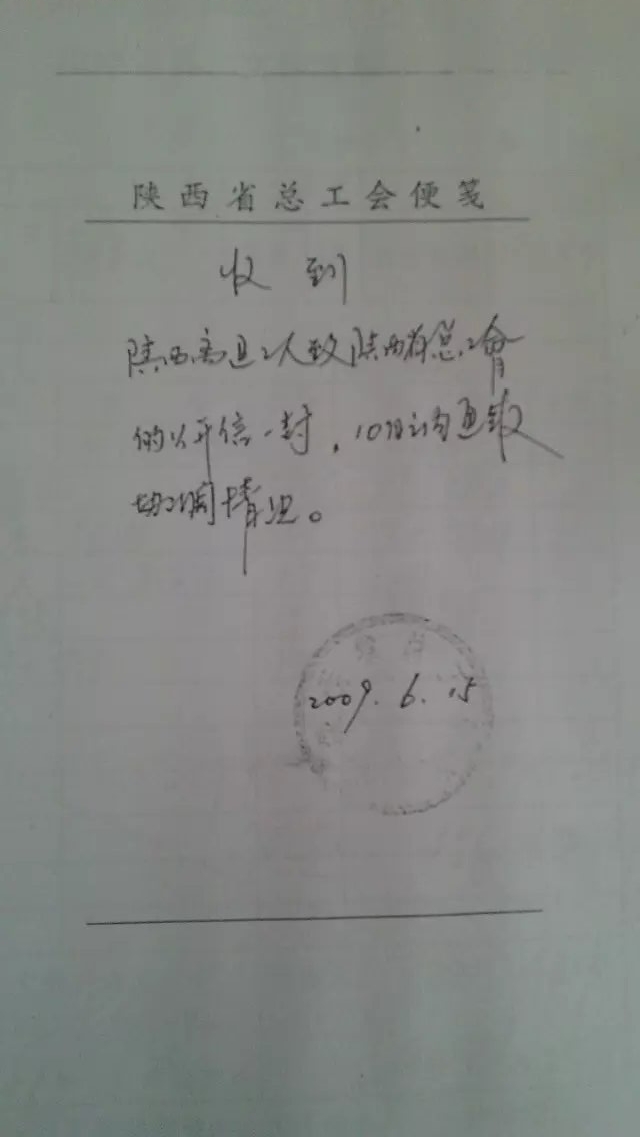 陕西省总工会便笺
收到
陕西高四工人致陕西省总工會
的公开信一封，10日内通报
协调情况。
2009.6.15